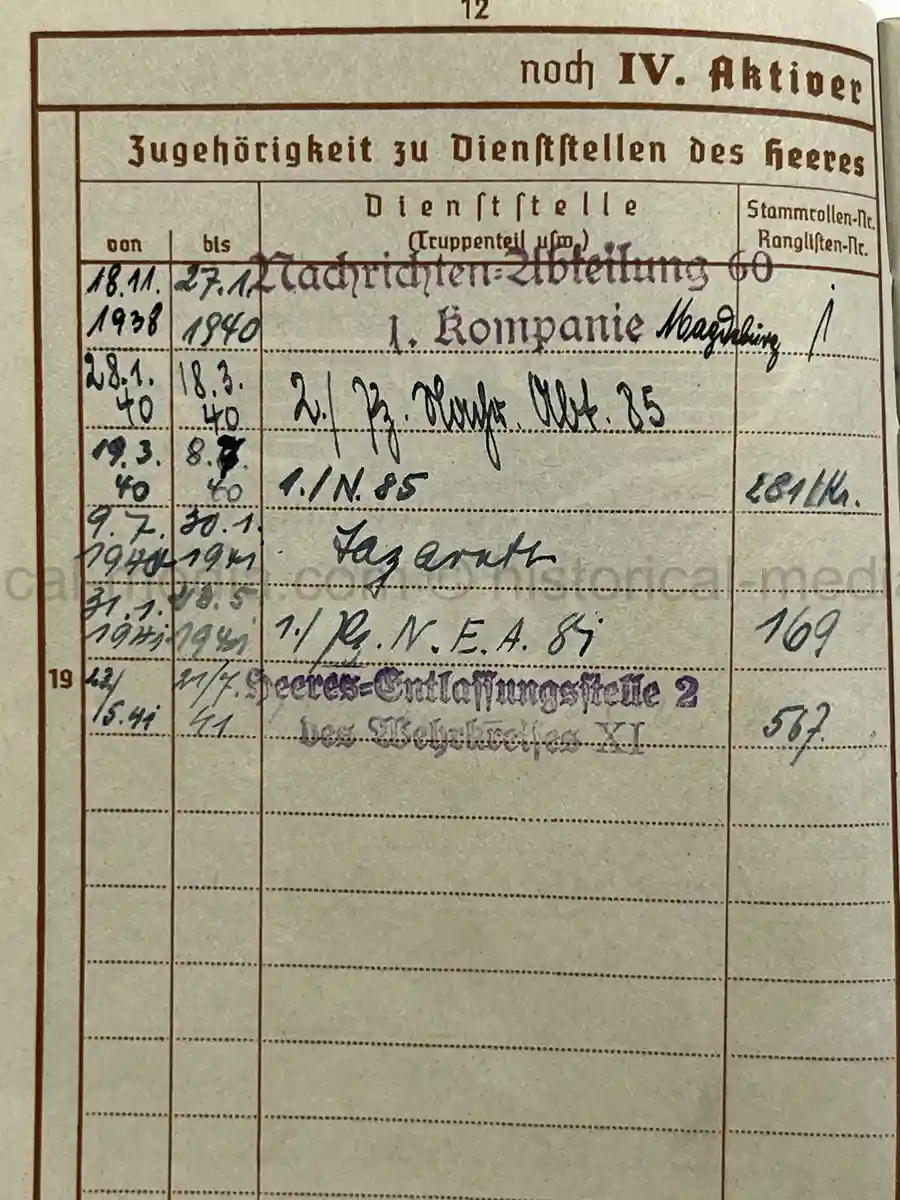 12
noch IV. Aktiver
Zugehörigkeit zu Dienststellen des Heeres
von bis Dienststelle (Truppenteil usw.) Stammrollen-Nr. Ranglisten-Nr.
18.11. 1938 27.1. 1940 Nachrichten-Abteilung 60
1. Kompanie Magdeburg
28.1. 40 18.3. 40 2./ Pz. Nachr. Abt. 85
19.3. 40 8.7. 40 1./N. 85 281/Kr.
9.7. 1940 30.1. 1941 Lazarett
31.1. 1941 1941 1./Pz. N. E. A. 169
19 5.41 21/7. 41 Heeres-Entlassungsstelle 2
des Wehrkreises XI 567.
historical-media